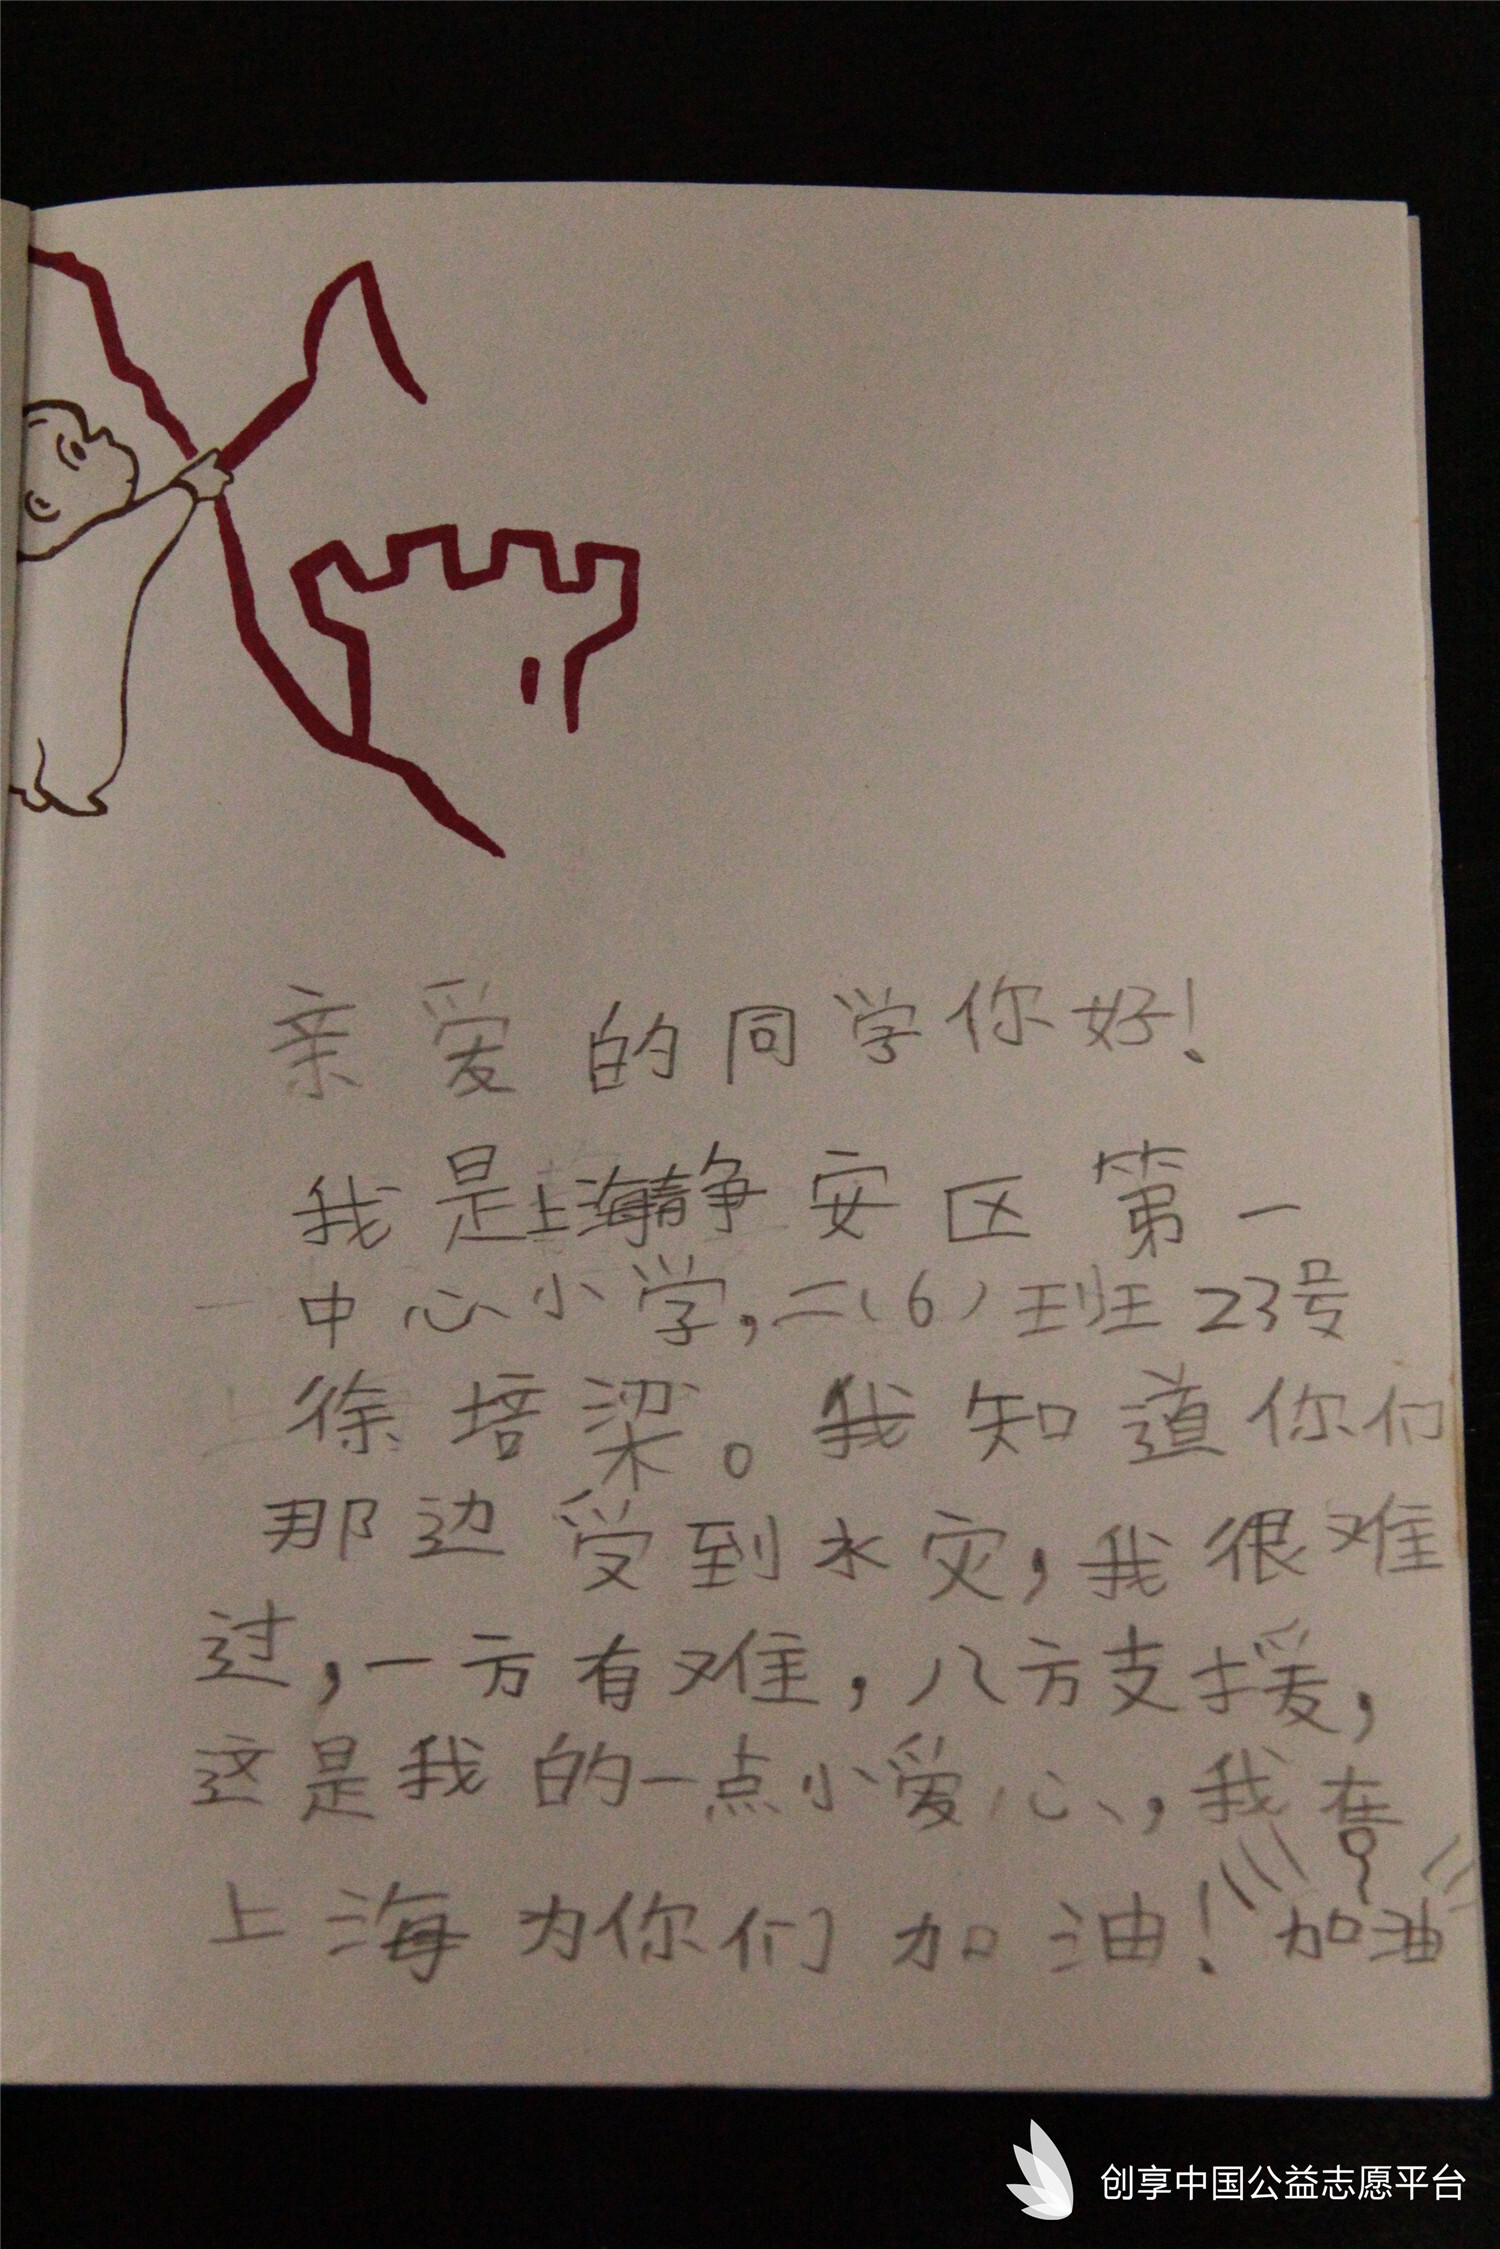 亲爱的同学你好!
我是上海静安区第一
中心小学,二(6)班23号
徐培梁。我知道你们
那边受到水灾,我很难
过,一方有难,八方支援,
这是我的一点小爱心,我在
上海为你们加油!加油
创享中国公益志愿平台